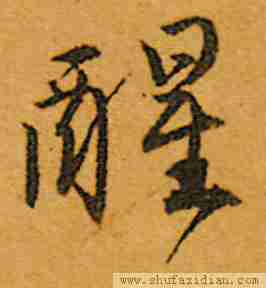 醒
www.shufazidian.com